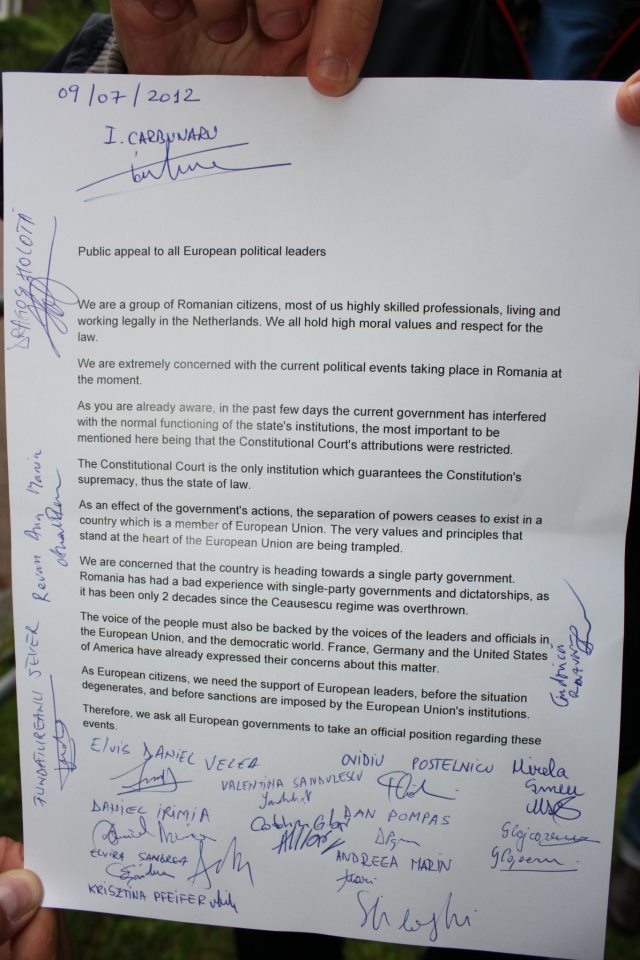 09/07/2012
I. CARBUNARU
Public appeal to all European political leaders
We are a group of Romanian citizens, most of us highly skilled professionals, living and
working legally in the Netherlands. We all hold high moral values and respect for the
law.
We are extremely concerned with the current political events taking place in Romania at
the moment.
As you are already aware, in the past few days the current government has interfered
with the normal functioning of the state's institutions, the most important to be
mentioned here being that the Constitutional Court's attributions were restricted.
The Constitutional Court is the only institution which guarantees the Constitution's
supremacy, thus the state of law.
As an effect of the government's actions, the separation of powers ceases to exist in a
country which is a member of European Union. The very values and principles that
stand at the heart of the European Union are being trampled.
We are concerned that the country is heading towards a single party government.
Romania has had a bad experience with single-party governments and dictatorships, as
it has been only 2 decades since the Ceausescu regime was overthrown.
The voice of the people must also be backed by the voices of the leaders and officials in
the European Union, and the democratic world. France, Germany and the United States
of America have already expressed their concerns about this matter.
As European citizens, we need the support of European leaders, before the situation
degenerates, and before sanctions are imposed by the European Union's institutions.
Therefore, we ask all European governments to take an official position regarding these
events.
DRAGOS HOLOTĂ
Revan Ana Maria
FUNDATUREANU SEVER
ELVIS DANIEL VELEA
OVIDIU POSTELNICU
Mirela
VALENTINA SANDULESCU
DANIEL IRIMIA
DAN POMPAS
ELVIRA SANDREA
ANDREEA MARIN
KRISZTINA PFEIFER